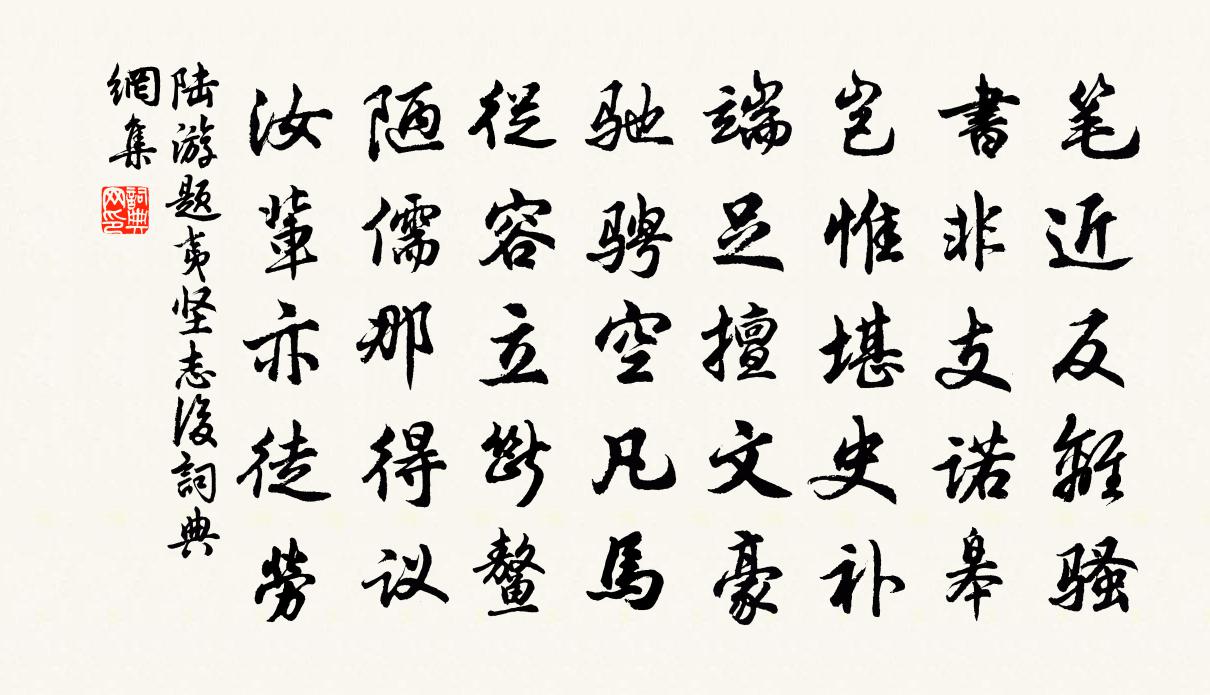 笔近反離騷
書非支诺皋
岂惟堪史补
端足擅文豪
馳骋空凡馬
從容立斷鳌
陋儒那得议
汝輩亦徒勞
陆游题夷坚志後詞典
網集
詞典網印